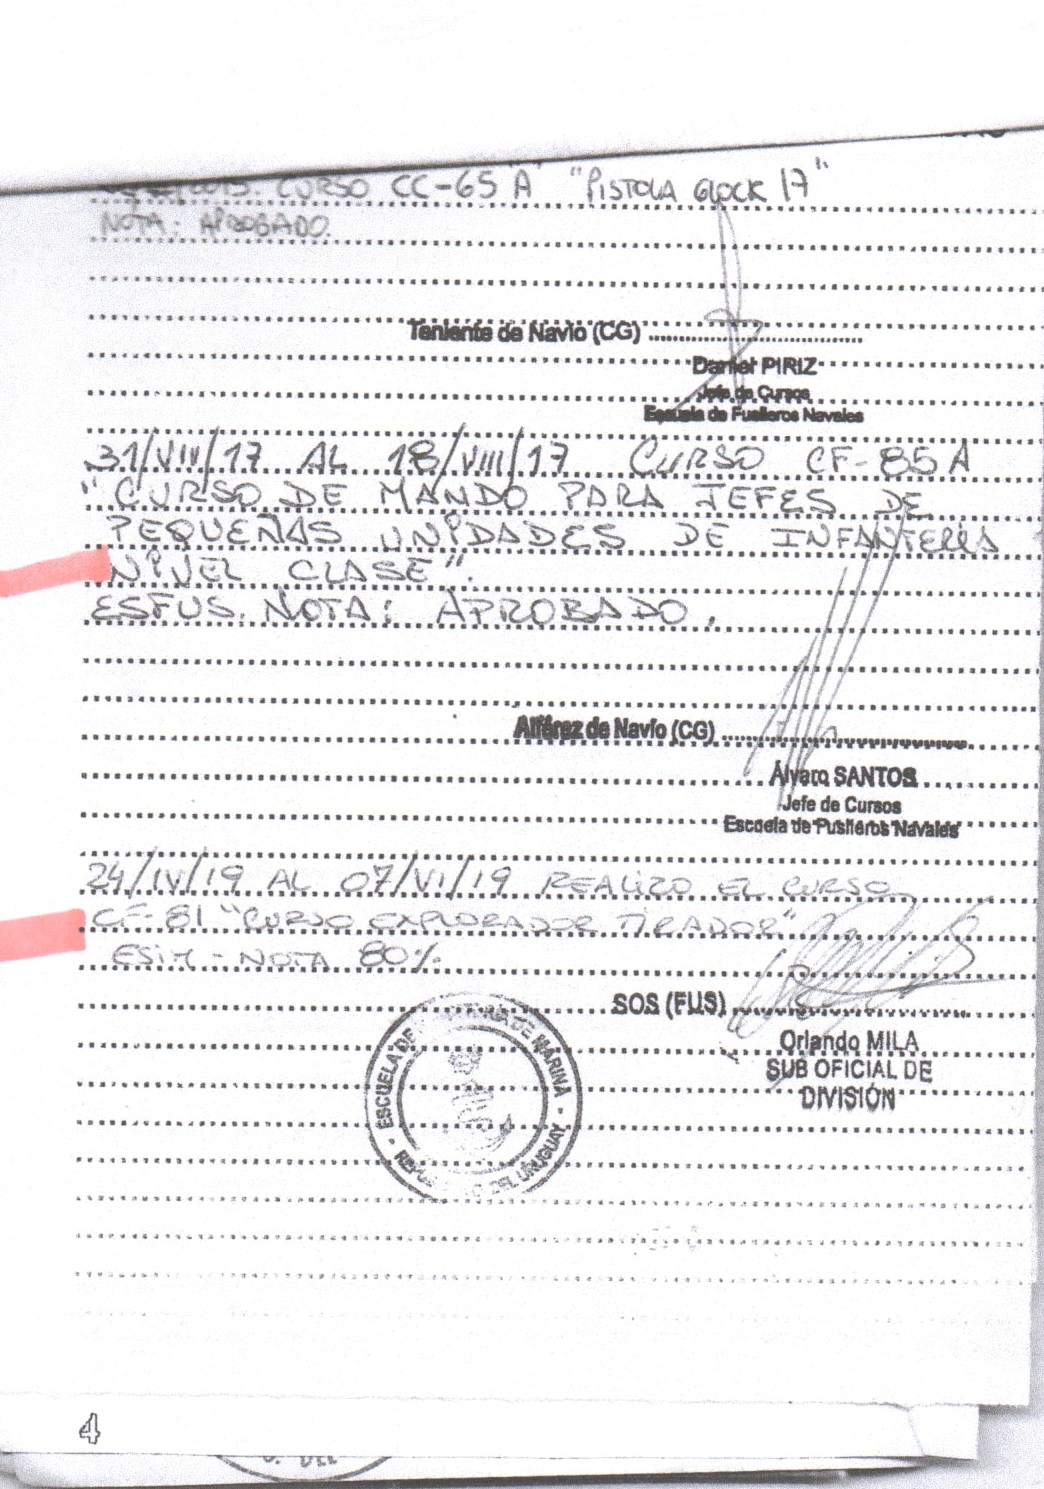 2015. CURSO CC-65 A "PISTOLA GLOCK 17"
NOTA: APROBADO.
Teniente de Navio (CG)
Daniel PIRIZ
Jefe de Cursos
Escuela de Fusileros Navales
31/VIII/17 AL 18/VIII/17 CURSO CF-85 A
"CURSO DE MANDO PARA JEFES DE
PEQUEÑAS UNIDADES DE INFANTERÍA
NIVEL CLASE".
ESFUS. NOTA: APROBADO.
Alférez de Navío (CG)
Álvaro SANTOS
Jefe de Cursos
Escuela de Fusileros Navales
24/IV/19 AL 07/VI/19 REALIZO EL CURSO
CF-81 "CURSO EXPLORADOR TIRADOR"
ESIM - NOTA 80%
SOS (FUS)
Orlando MILA
SUB OFICIAL DE
DIVISIÓN
ESCUELA DE DE MARINA
DEL URUGUAY
4
DEL